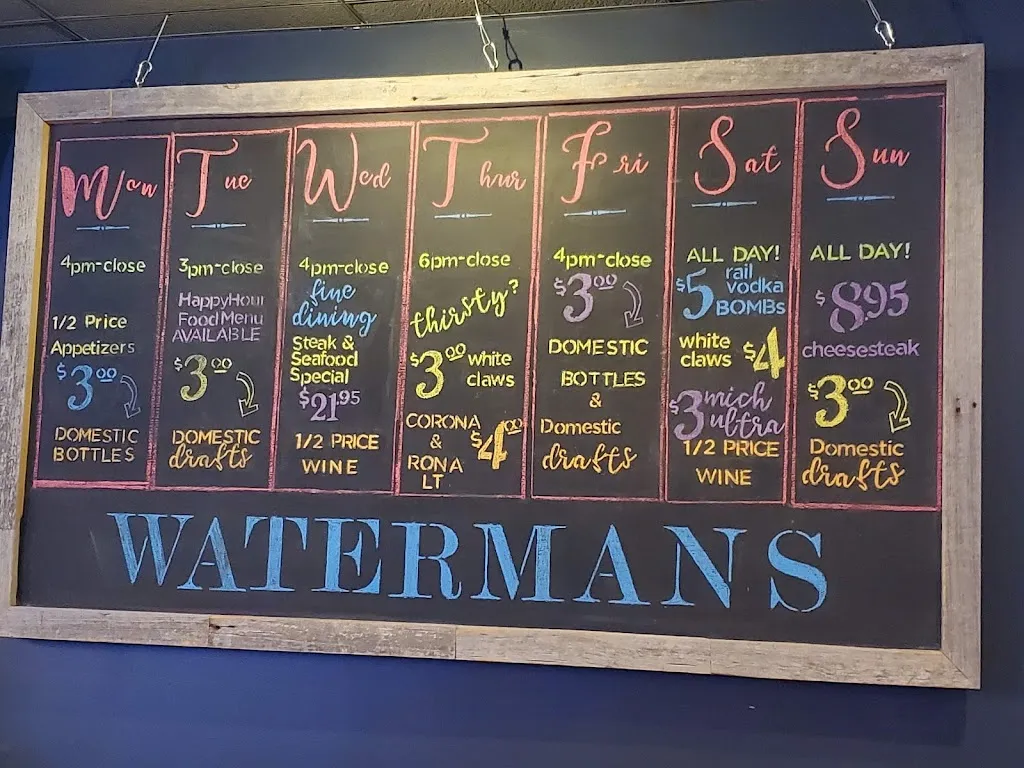 Mon
4pm-close
1/2 Price
Appetizers
$3.00
DOMESTIC
BOTTLES
Tue
3pm-close
HappyHour
Food Menu
AVAILABLE
$3.00
DOMESTIC
drafts
Wed
4pm-close
fine
dining
Steak &
Seafood
Special
$21.95
1/2 PRICE
WINE
Thur
6pm-close
thirsty?
$3.00 white
claws
CORONA
&
RONA
LT
$4.00
Fri
4pm-close
$3.00
DOMESTIC
BOTTLES
&
Domestic
drafts
Sat
ALL DAY!
$5 rail
vodka
BOMBs
white
claws $4
$3 mich
ultra
1/2 PRICE
WINE
Sun
ALL DAY!
$8.95
cheesesteak
$3.00
Domestic
drafts
WATERMANS